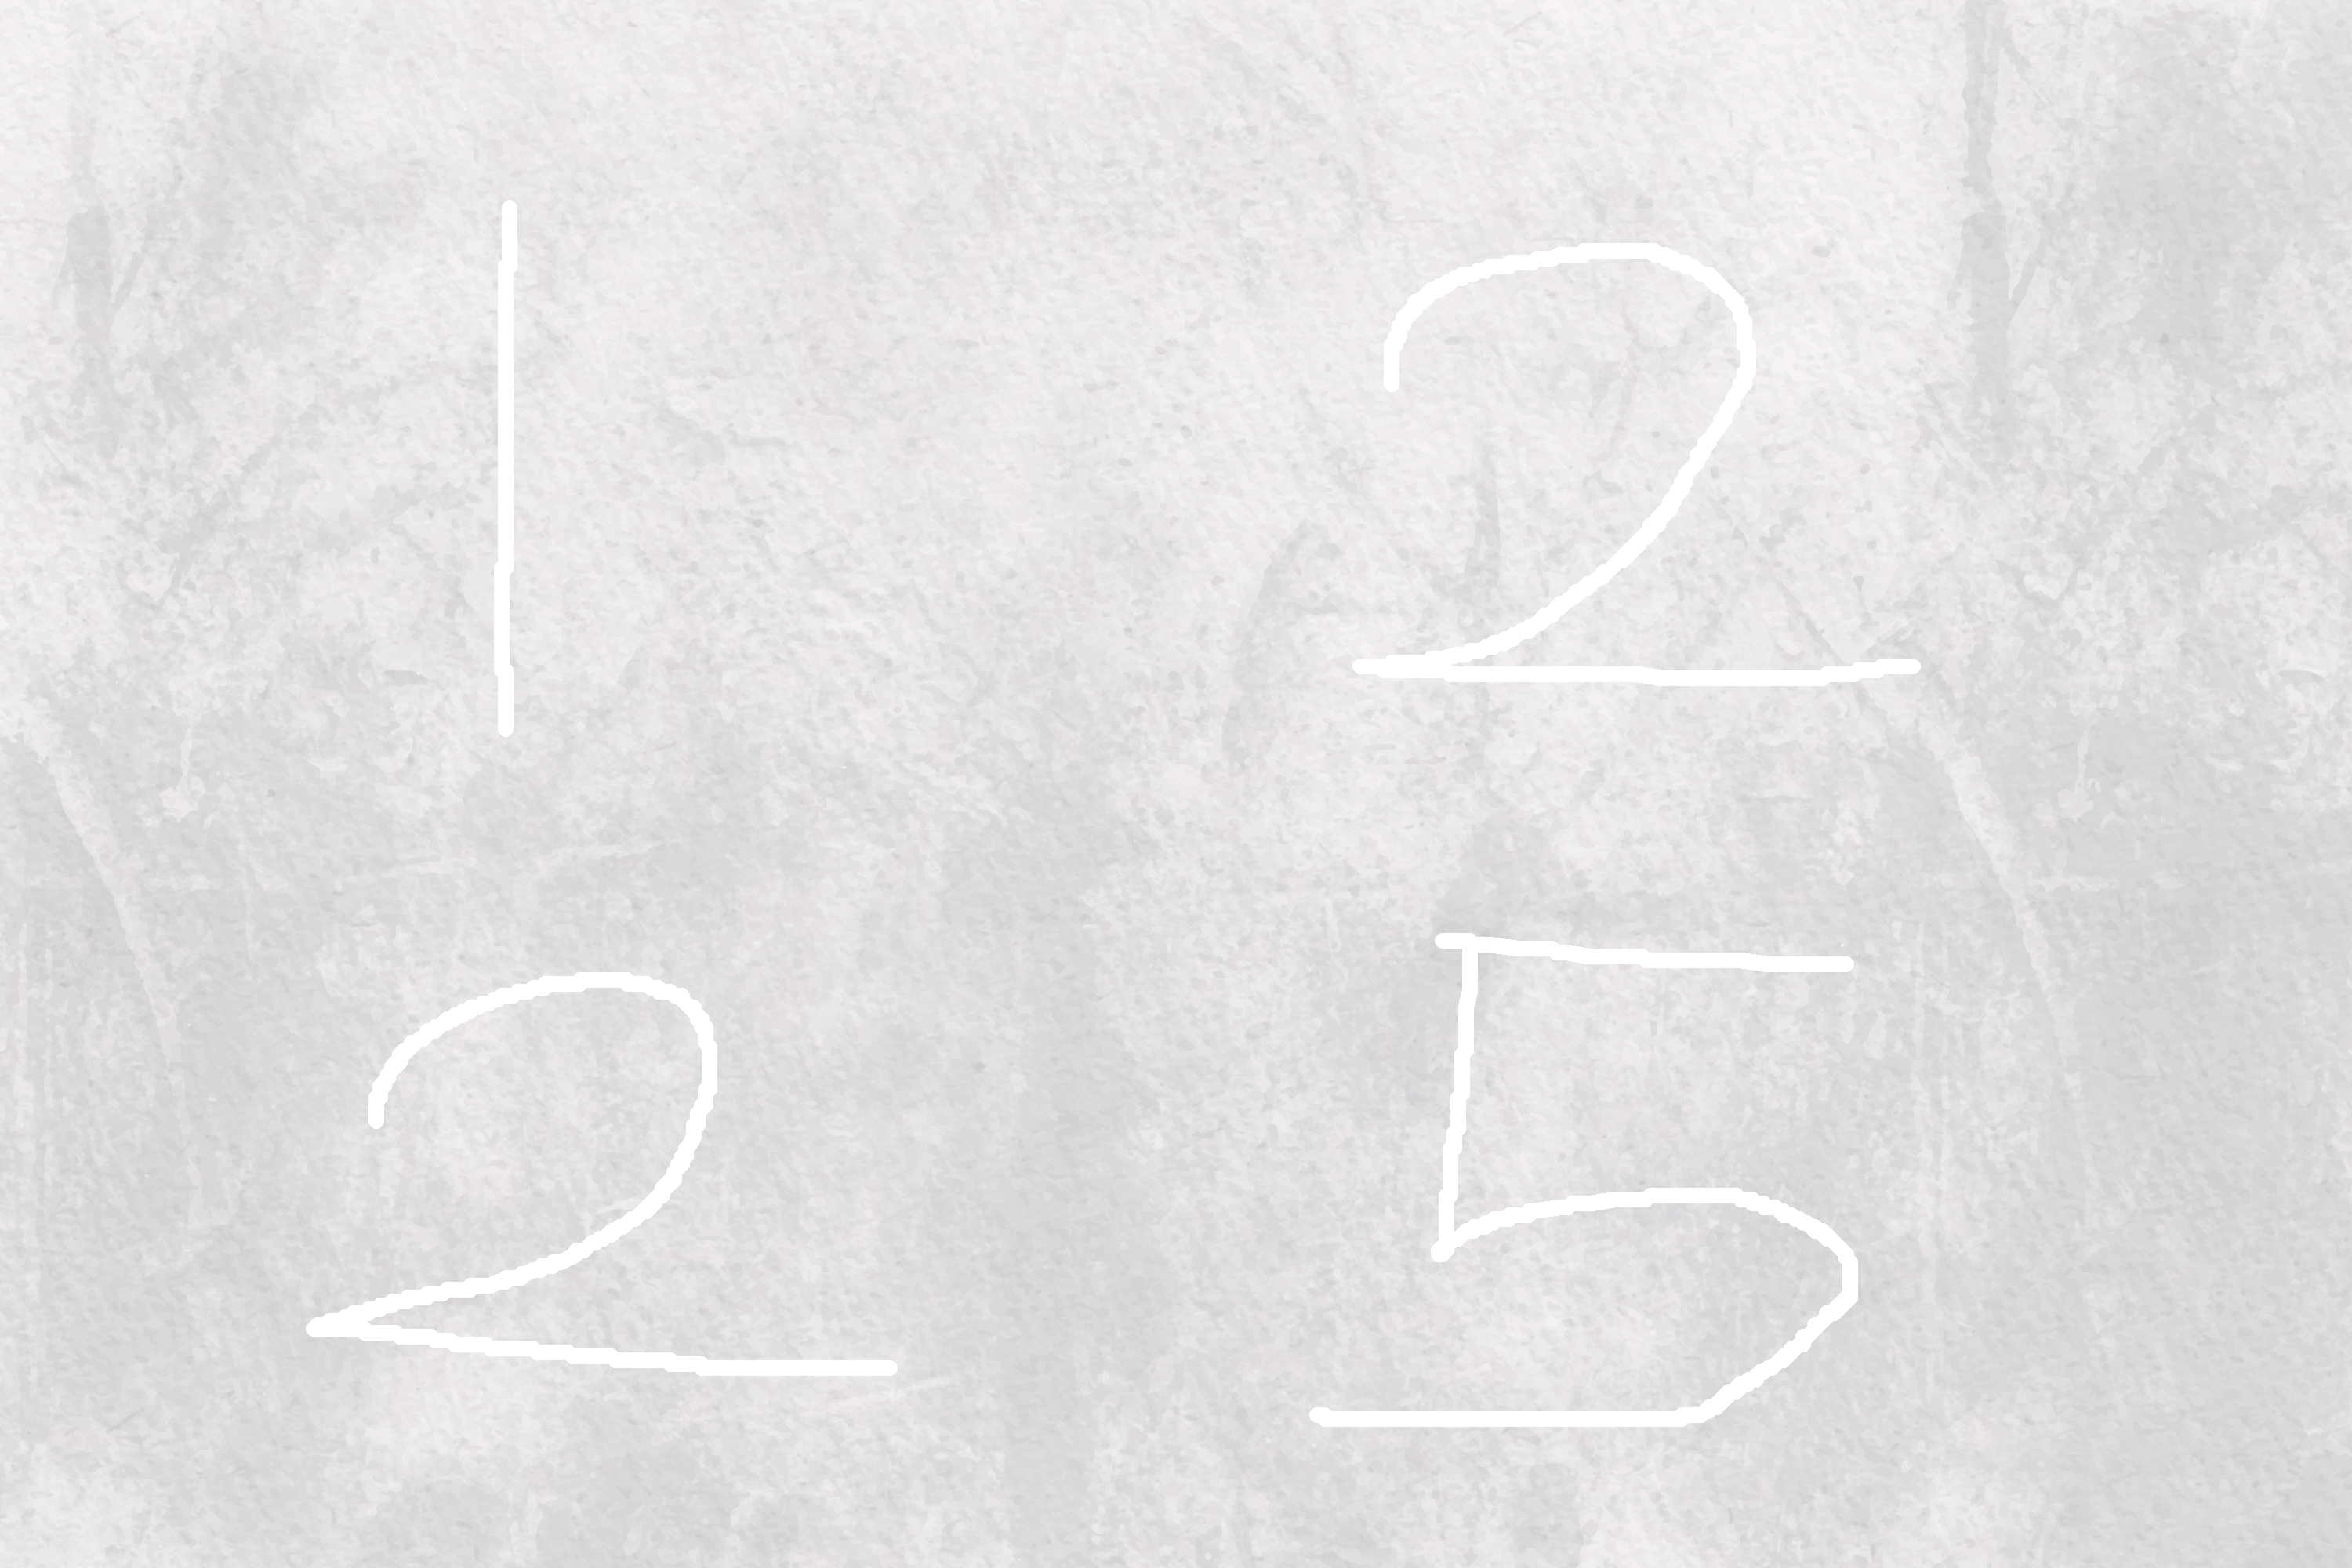 1 2
2 5